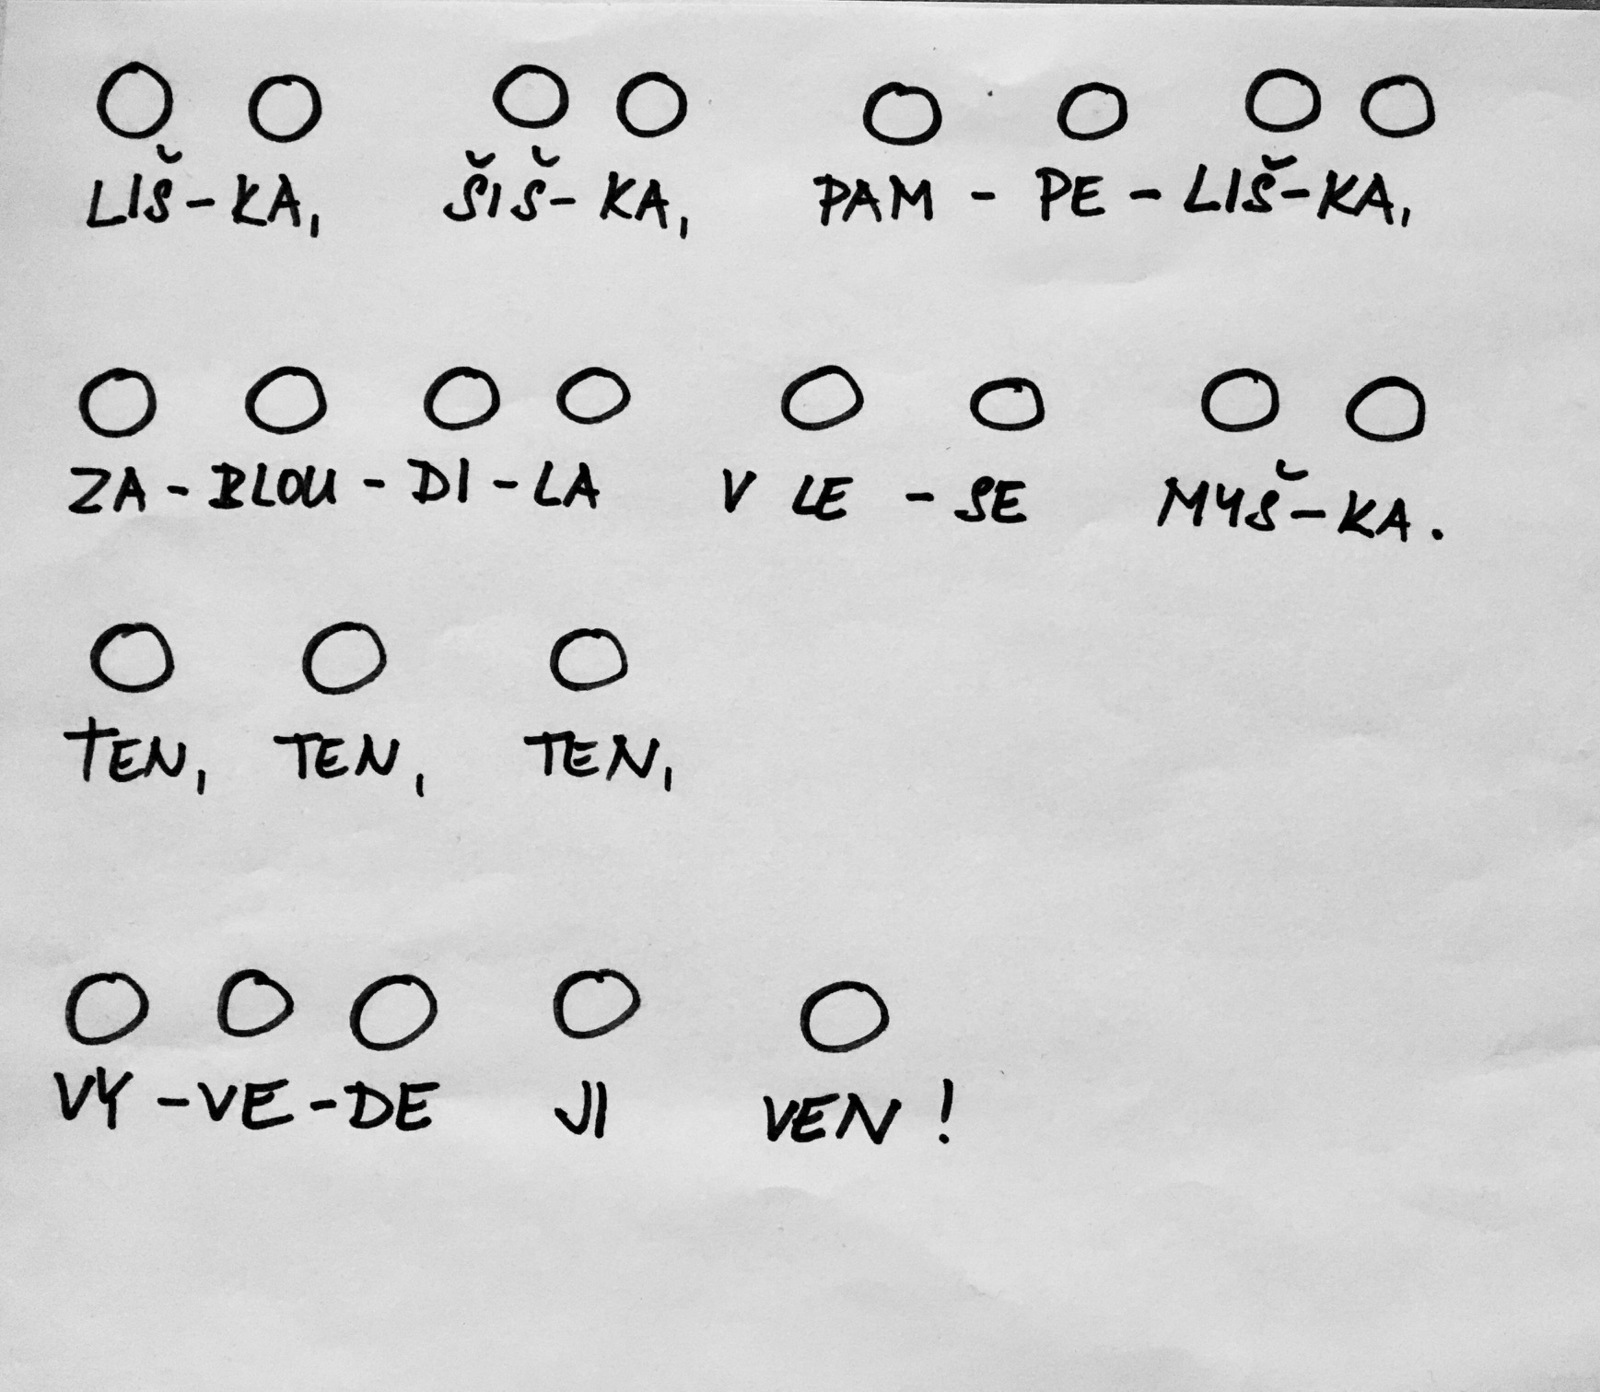 LIŠ-KA, ŠIŠ-KA, PAM - PE - LIŠ-KA,
ZA - BLOU - DI - LA V LE - SE MYŠ-KA.
TEN, TEN, TEN,
VY -VE-DE JI VEN!